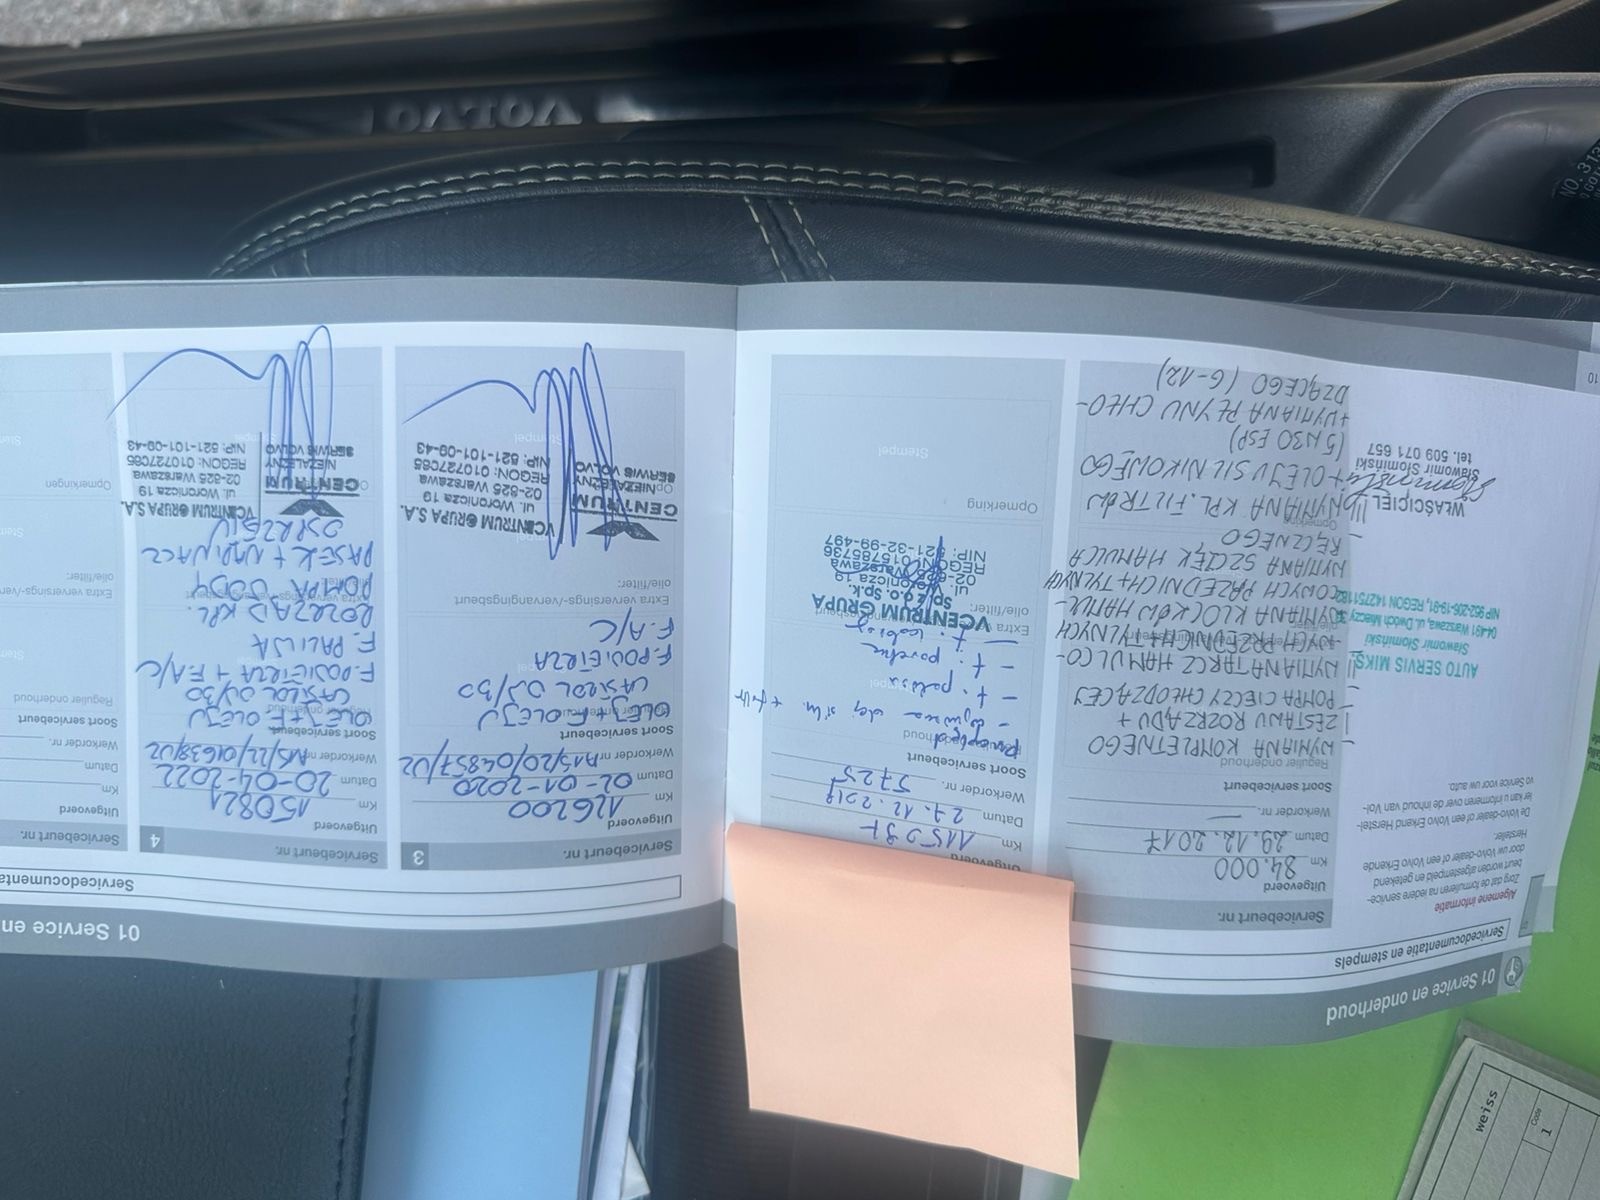 VOLVO
NO. 313
01 Service en onderhoud
Servicedocumentatie en stempels
Algemene informatie
Zorg dat formulieren na iedere service-
beurt worden afgestempeld en getekend
door uw Volvo-dealer of een Volvo Erkende
Hersteller.
De Volvo-dealer of een Volvo Erkend Herstel-
ler kan u informeren over de inhoud van Vol-
vo Service voor uw auto.
AUTO SERVIS MIKS
Sławomir Słomiński
04-491 Warszawa, ul. Dwóch Mieczy
NIP 952-206-19-91, REGON
WŁAŚCICIEL
Sławomir Słomiński
tel. 509 071 657
10
Servicebeurt nr.
Uitgevoerd
Km 84.000
Datum 29.12.2017
Werkorder nr. —
Soort servicebeurt
Regulier onderhoud
- WYMIANA KOMPLETNEGO
ZESTAWU ROZRZĄDU +
- POMPA CIECZY CHŁODZĄCEJ
WYMIANA TARCZ HAMULCO-
WYCH PRZEDNICH + TYLNYCH
WYMIANA KLOCKÓW HAMUL-
COWYCH PRZEDNICH + TYLNYCH
WYMIANA SZCZĘK HAMULCA
RĘCZNEGO
Opmerking
WYMIANA KPL. FILTRÓW
+ OLEJU SILNIKOWEGO
(5W30 ESP)
+ WYMIANA PŁYNU CHŁO-
DZĄCEGO (G-12)
Uitgevoerd
Km
Datum 27.12.2018
Werkorder nr. 5725
Soort servicebeurt
Regulier onderhoud
Przegląd
- wymiana olej siln. + filtr
- f. paliwa
- f. powietrza
Extra
olie/filter:
VCENTRUM GRUPA
Sp. z o.o. Sp.k.
ul. Woronicza 19
Warszawa
REGON: 015785736
NIP: 521-32-99-497
Opmerking
Stempel
Servicebeurt nr. 3
Uitgevoerd
Km 126200
Datum 02-01-2020
Werkorder nr. A1S/20/04857/02
Soort servicebeurt
OLEJ + F. OLEJU
CASTROL 0W/30
F. POWIETRZA
F. A/C
Extra verversings-/vervangingsbeurt
olie/filter:
VCENTRUM GRUPA S.A.
ul. Woronicza 19
02-825 Warszawa
REGON: 010727085
NIP: 521-101-09-43
CENTRUM
NIEZALEŻNY
SERWIS VOLVO
Stempel
01 Service en
Servicedocumenta
Servicebeurt nr. 4
Uitgevoerd
Km 150821
Datum 20-04-2022
Werkorder nr. A1S/22/01638/02
Soort servicebeurt
OLEJ + F. OLEJU
CASTROL 0W/30
F. POWIETRZA + F. A/C
F. PALIWA
ROZRZĄD KPL.
POMPA WODY
PASEK + NAPINACZ
OSPRZĘTU
VCENTRUM GRUPA S.A.
ul. Woronicza 19
02-825 Warszawa
REGON: 010727085
NIP: 521-101-09-43
CENTRUM
NIEZALEŻNY
SERWIS VOLVO
Servicebeurt nr.
Uitgevoerd
Km
Datum
Werkorder nr.
Soort servicebeurt
Regulier onderhoud
Extra verversings-/vervan
olie/filter:
Opmerkingen
weiss
Code
1